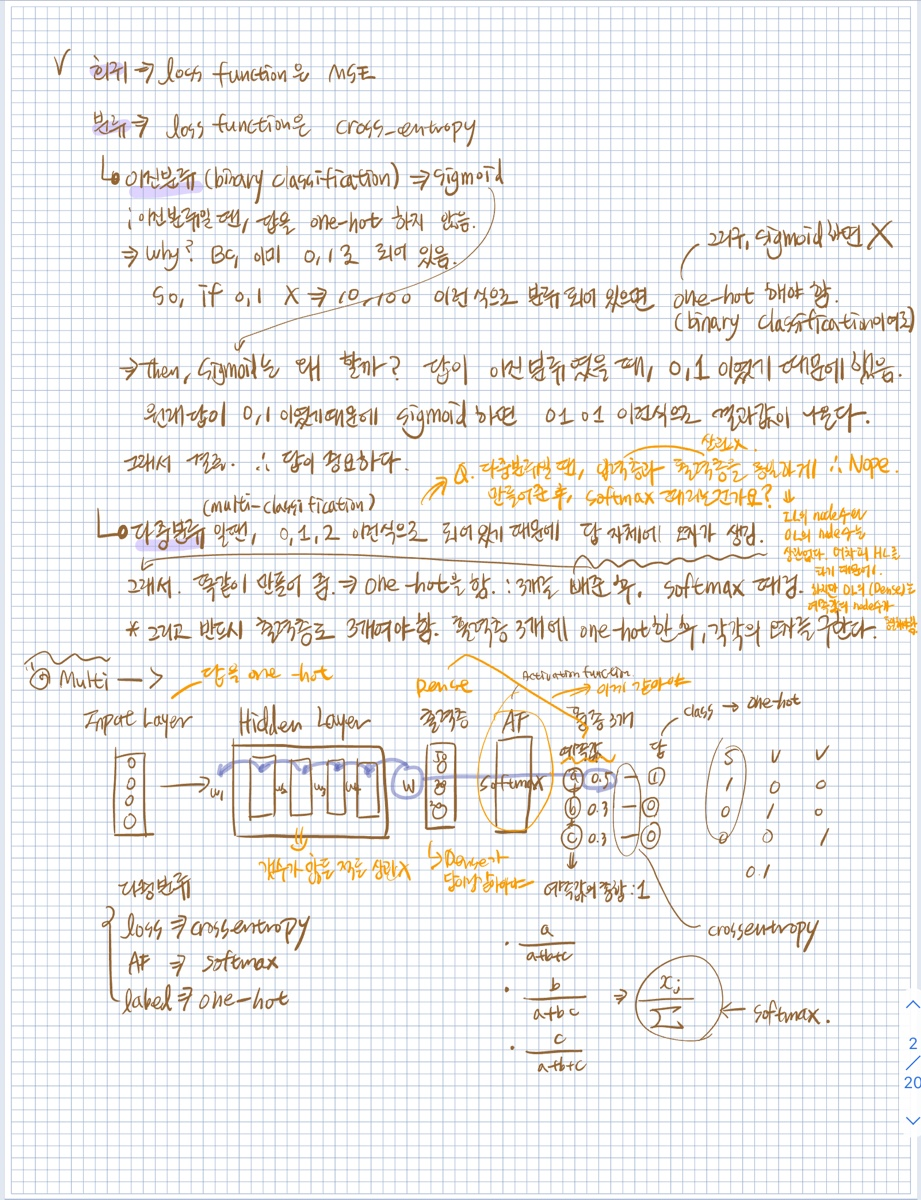 V 회귀 → loss function은 MSE
분류 ⇒ loss function은 cross-entropy
이진분류 (binary classification) ⇒ sigmoid
; 이진분류일 땐, 답을 one-hot 하지 않음.
⇒ why? Bc, 이미 0, 1로 되어 있음.
그리구, sigmoid 하면 X
So, if 0,1 X ⇒ 10, 100 이런식으로 분류 되어 있으면 one-hot 해야 함.
(binary classification이여도)
⇒ then, sigmoid는 왜 할까? 답이 이진분류였을 때, 0,1 이였기 때문에 했음.
원래 답이 0,1 이였기 때문에 sigmoid 하면 01 01 이런식으로 결과값이 나온다.
그래서 결론. ∴ 답이 중요하다.
상관X
Q. 다중분류일 땐, 입력층과 출력층을 동일하게 ∴ Nope.
만들어준 후, softmax 때리는건가요?
(multi-classification)
다중분류일땐, 0, 1, 2 이런식으로 되어 있기 때문에 답 자체에 오차가 생김.
IL의 node수와
OL의 node수는
상관없다. 어차피 HL로
가기 때문에!
하지만 OL의 (Dense)는
예측값의 node수가
그래서. 똑같이 만들어 줌. ⇒ one-hot을 함. : 3개로 빼준 후, softmax 때림.
* 그리고 반드시 출력층도 3개여야 함. 출력층 3개에 one-hot한 후, 각각의 오차를 구한다.
Multi →
답을 one hot
Input Layer
Hidden Layer
Dense
출력층
Activation function
AF
이게 같아야
품종 3개
class → one-hot
예측값
답
S V V
w1 w2 w3 w4
W
50
30
20
softmax
a 0.5 — 1
b 0.3 — 0
c 0.3 — 0
1 0 0
0 1 0
0 0 1
0.1
갯수가 많든 적든 상관X
Dense가
예측값의 총합 : 1
crossentropy
다중분류
loss ⇒ crossentropy
AF ⇒ softmax
label ⇒ one-hot
· a / a+b+c
· b / a+b c ⇒ xj / Σ ← softmax.
· c / a+b+c
2
/
20